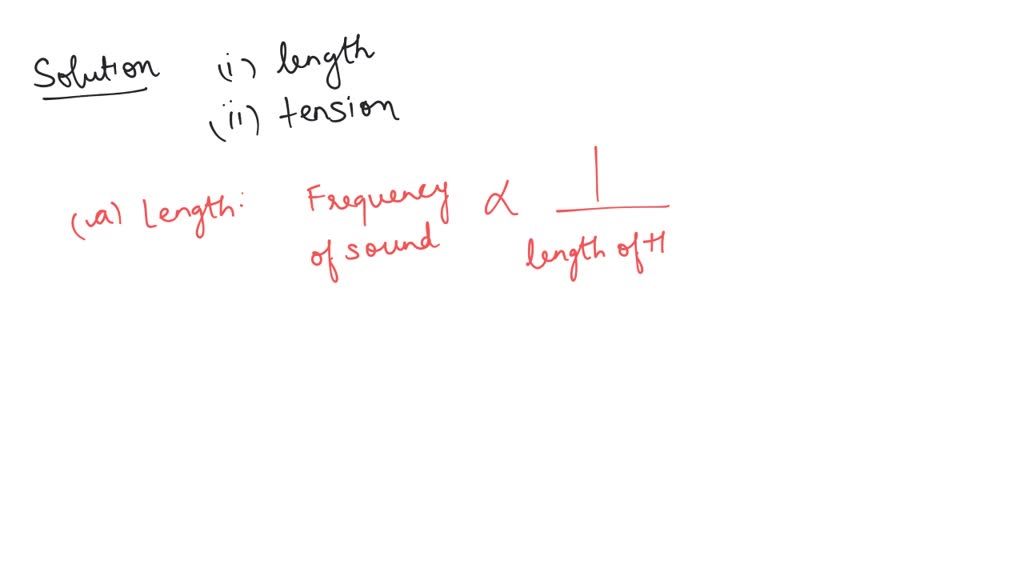 Solution (i) length
(ii) tension
(a) Length: Frequency of sound ∝ 1
length of